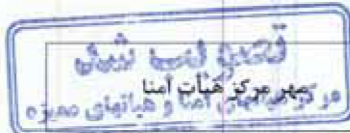 تصویب شد
مهر مرکز هیأت امنا
مرکز هیأتهای امنا و هیأتهای ممیزه